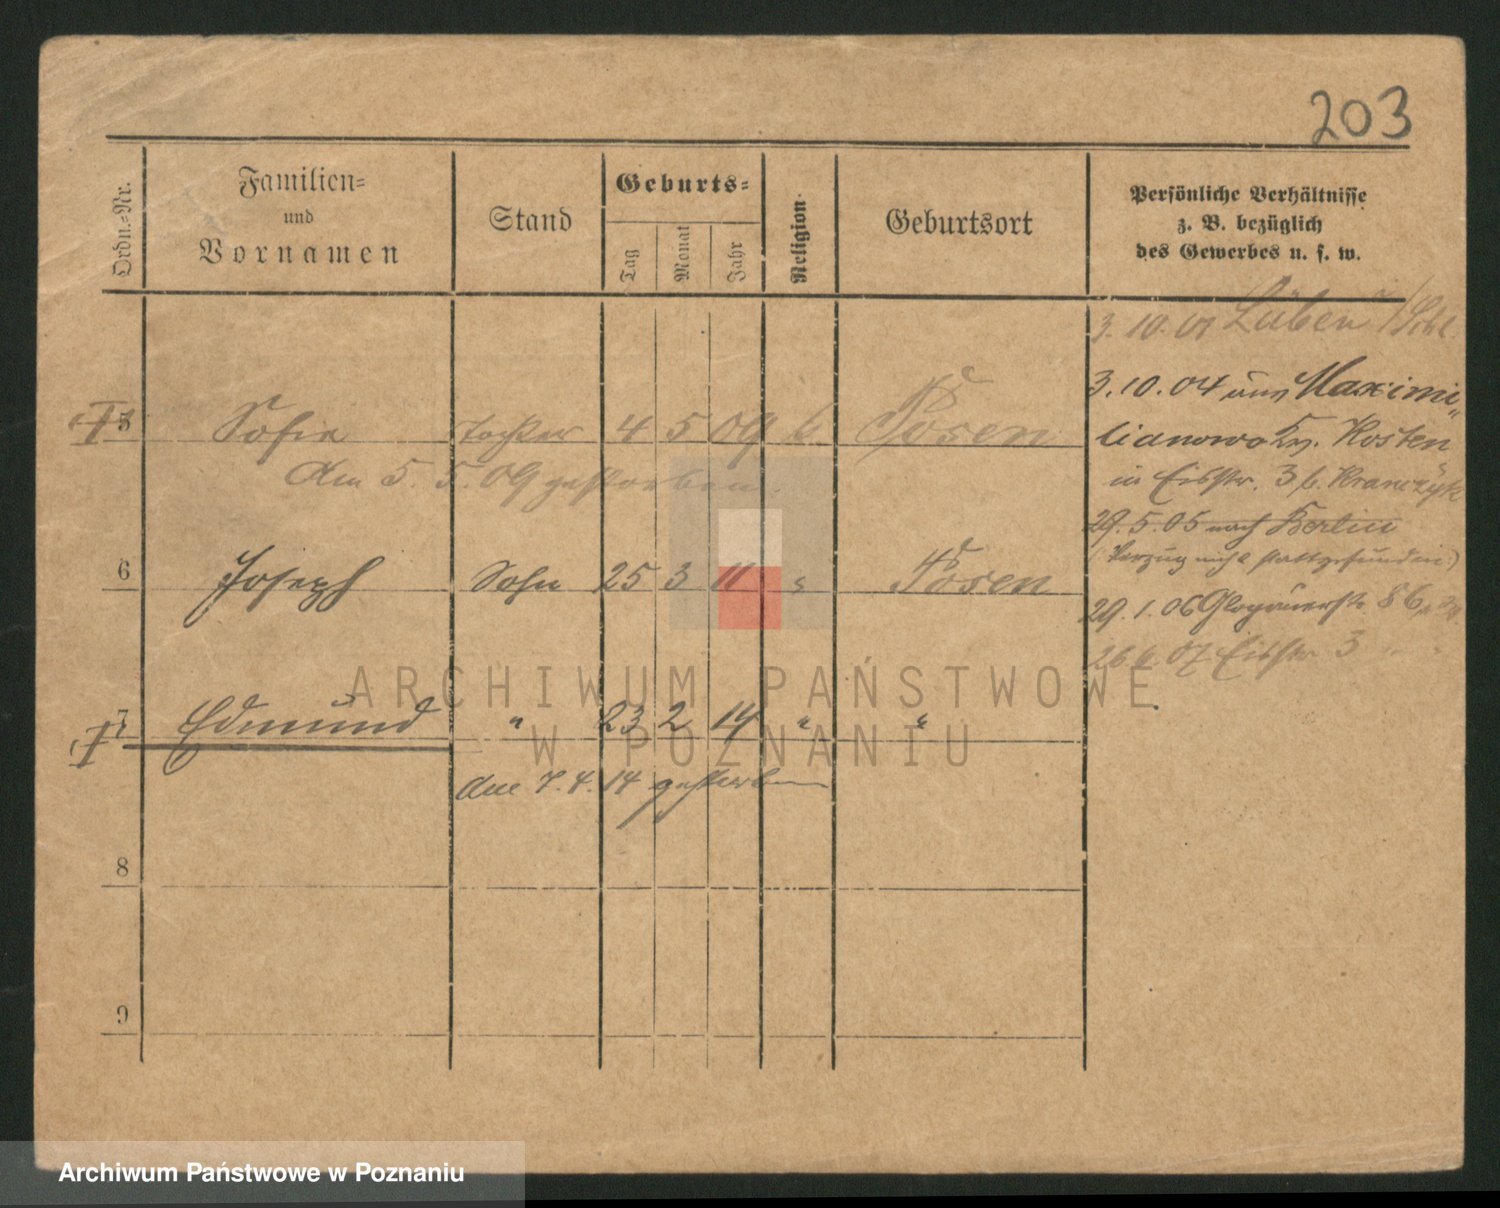 203
Ordn.-Nr.
Familien-
und
Vornamen
Stand
Geburts-
Tag
Monat
Jahr
Religion.
Geburtsort
Persönliche Verhältnisse
z. B. bezüglich
des Gewerbes u. s. w.
3. 10. 01 Lüben
3. 10. 04 aus Maximi„
lianowo Kr. Kosten
in Eibstr. 3 b.
29. 5. 05 nach Berlin
(Verzug nicht stattgefunden)
29. 1. 06 Glogauerstr. 86
26 6 07 Eibstr 3
5 Sofie Tochter 4 5 09 k. Posen
Am 5. 5. 09 gestorben.
6 Joseph Sohn 25 3 11 " Posen
7 Edmund " 23 2 14 " "
Am 7. 4. 14 gestorben
8
9
ARCHIWUM PAŃSTWOWE
W POZNANIU
Archiwum Państwowe w Poznaniu